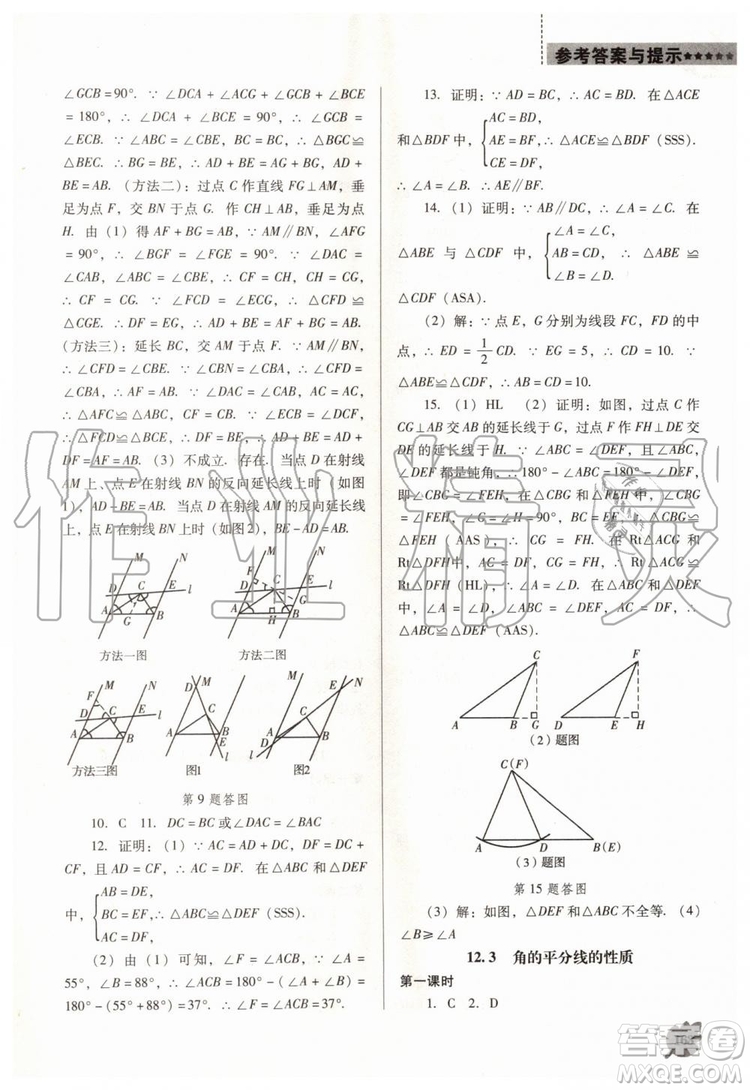 参考答案与提示★★★★★
∠GCB=90°. ∵ ∠DCA+∠ACG+∠GCB+∠BCE
=180°, ∴ ∠DCA+∠BCE=90°. ∴ ∠GCB=
∠ECB. ∵ ∠ABC=∠CBE, BC=BC, ∴ △BGC≌
△BEC. ∴ BG=BE, ∴ AD+BE=AG+BG, AD+
BE=AB. (方法二): 过点 C 作直线 FG⊥AM, 垂
足为点 F, 交 BN 于点 G. 作 CH⊥AB, 垂足为点
H. 由 (1) 得 AF+BG=AB. ∵ AM∥BN, ∠AFG
=90°, ∴ ∠BGF=∠FGE=90°. ∵ ∠DAC=
∠CAB, ∠ABC=∠CBE, ∴ CF=CH, CH=CG,
∴ CF=CG. ∵ ∠FCD=∠ECG, ∴ △CFD≌
△CGE. ∴ DF=EG, ∴ AD+BE=AF+BG=AB.
(方法三): 延长 BC, 交 AM 于点 F. ∵ AM∥BN,
∴ ∠AFC=∠CBE. ∵ ∠ABC=∠CBE, ∴ ∠CFD=
∠CBA, ∴ AF=AB. ∵ ∠DAC=∠CAB, AC=AC,
∴ △AFC≌△ABC, CF=CB. ∵ ∠BCE=∠DCF,
∴ △FCD≌△BCE, ∴ DF=BE, ∴ AD+BE=AD+
DF=AF=AB. (3) 不成立. 存在. 当点 D 在射线
AM 上, 点 E 在射线 BN 的反向延长线上时 (如图
1), AD-BE=AB. 当点 D 在射线 AM 的反向延长
线上, 点 E 在射线 BN 上时 (如图2), BE-AD=AB.
M N D C E l A G B
方法一图
M N F D C E l G A H B
方法二图
F M N D C E l A B
方法三图
D M N C A B E l
图1
M E N C A D B l
图2
第 9 题答图
10. C 11. DC=BC 或∠DAC=∠BAC
12. 证明: (1) ∵ AC=AD+DC, DF=DC+
CF, 且 AD=CF, ∴ AC=DF. 在△ABC 和△DEF
AB=DE,
中, BC=EF, ∴ △ABC≌△DEF (SSS).
AC=DF,
(2) 由 (1) 可知, ∠F=∠ACB. ∵ ∠A=
55°, ∠B=88°, ∴ ∠ACB=180°-(∠A+∠B)=
180°-(55°+88°)=37°. ∴ ∠F=∠ACB=37°.
13. 证明: ∵ AD=BC, ∴ AC=BD. 在△ACE
AC=BD,
和△BDF 中, AE=BF, ∴ △ACE≌△BDF (SSS).
CE=DF,
∴ ∠A=∠B, ∴ AE∥BF.
14. (1) 证明: ∵ AB∥DC, ∴ ∠A=∠C. 在
∠A=∠C,
△ABE 与 △CDF 中, AB=CD, ∴ △ABE≌
∠B=∠D.
△CDF (ASA).
(2) 解: ∵ 点 E, G 分别为线段 FC, FD 的中
点, ∴ ED=1/2 CD. ∵ EG=5, ∴ CD=10. ∵
△ABE≌△CDF, ∴ AB=CD=10.
15. (1) HL (2) 证明: 如图, 过点 C 作
CG⊥AB 交 AB 的延长线于点 G, 过点 F 作 FH⊥DE 交
DE 的延长线于点 H. ∵ ∠ABC=∠DEF, 且∠ABC,
∠DEF 都是钝角, ∴ 180°-∠ABC=180°-∠DEF,
即∠CBG=∠FEH, 在△CBG 和△FEH 中, ∵ ∠CBG
=∠FEH, ∠G=∠H=90°, BC=EF, ∴ △CBG≌
△FEH (AAS), ∴ CG=FH. 在 Rt△ACG 和
Rt△DFH中, ∵ AC=DF, CG=FH, ∴ Rt△ACG≌
Rt△DFH (HL), ∴ ∠A=∠D. 在△ABC 和△DEF
中, ∵ ∠ABC=∠DEF, ∠A=∠D, AC=DF,
∴ △ABC≌△DEF (AAS).
C A B G
F D E H
(2) 题图
C(F) A D B(E)
(3) 题图
第 15 题答图
(3) 解: 如图, △DEF 和△ABC 不全等. (4)
∠B≥∠A
12.3 角的平分线的性质
第一课时
1. C 2. D
作业精灵
答案圈
MXQE.COM